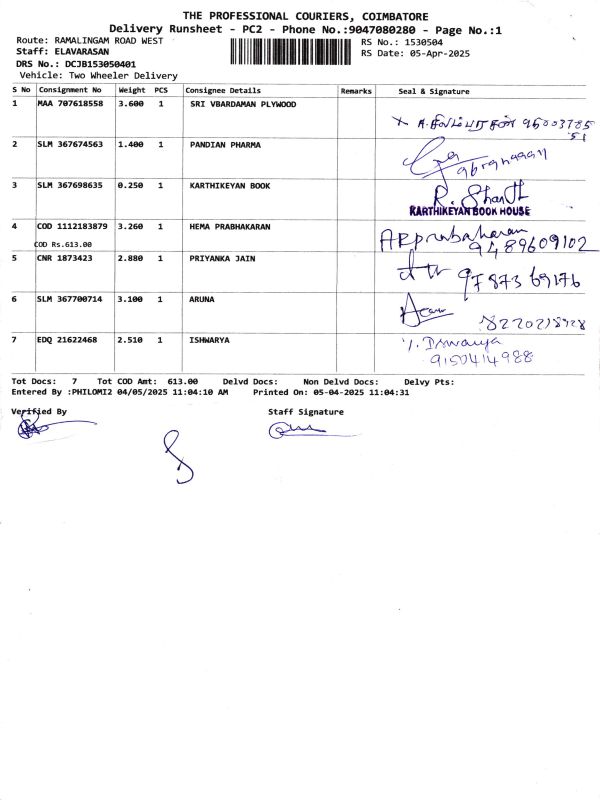 THE PROFESSIONAL COURIERS, COIMBATORE
Delivery Runsheet - PC2 - Phone No.:9047080280 - Page No.:1
Route: RAMALINGAM ROAD WEST RS No.: 1530504
Staff: ELAVARASAN RS Date: 05-Apr-2025
DRS No.: DCJB153050401
Vehicle: Two Wheeler Delivery
S No Consignment No Weight PCS Consignee Details Remarks Seal & Signature
1 MAA 707618558 3.600 1 SRI VBARDAMAN PLYWOOD
2 SLM 367674563 1.400 1 PANDIAN PHARMA
3 SLM 367698635 0.250 1 KARTHIKEYAN BOOK R. Shanth
KARTHIKEYAN BOOK HOUSE
4 COD 1112183879 3.260 1 HEMA PRABHAKARAN ARprabaharan
COD Rs.613.00 9489609102
5 CNR 1873423 2.880 1 PRIYANKA JAIN 97873 69176
6 SLM 367700714 3.100 1 ARUNA
7 EDQ 21622468 2.510 1 ISHWARYA
9150414988
Tot Docs: 7 Tot COD Amt: 613.00 Delvd Docs: Non Delvd Docs: Delvy Pts:
Entered By :PHILOMI2 04/05/2025 11:04:10 AM Printed On: 05-04-2025 11:04:31
Verified By Staff Signature